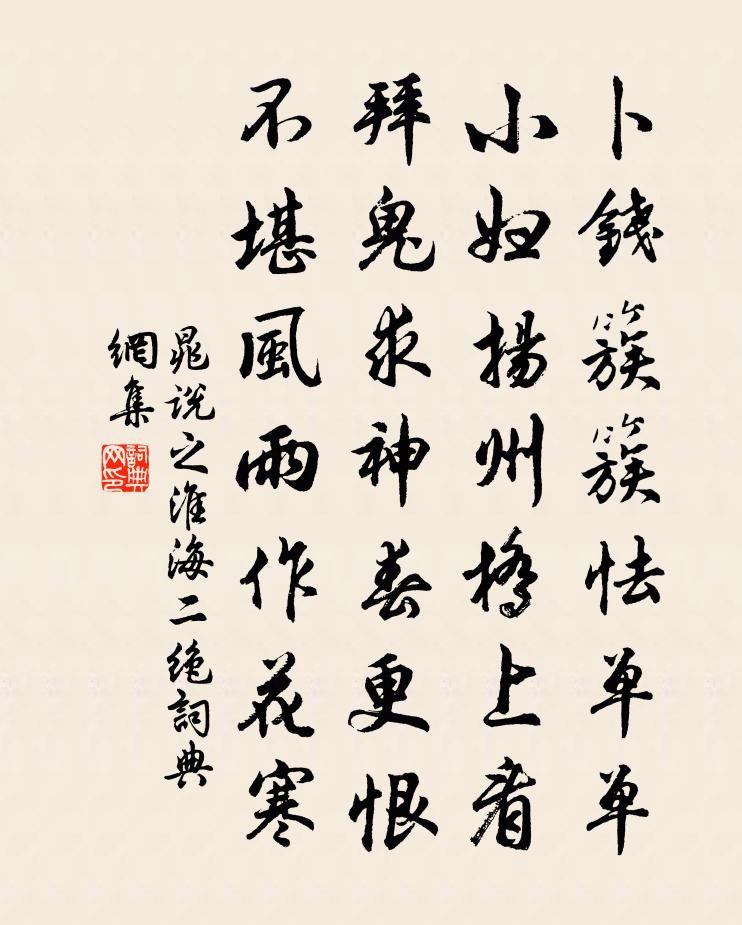 卜錢簇簇怯單單
小妇揚州橋上看
拜鬼求神春更恨
不堪風雨作花寒
晁說之淮海二絶詞典
網集
詞典
网印